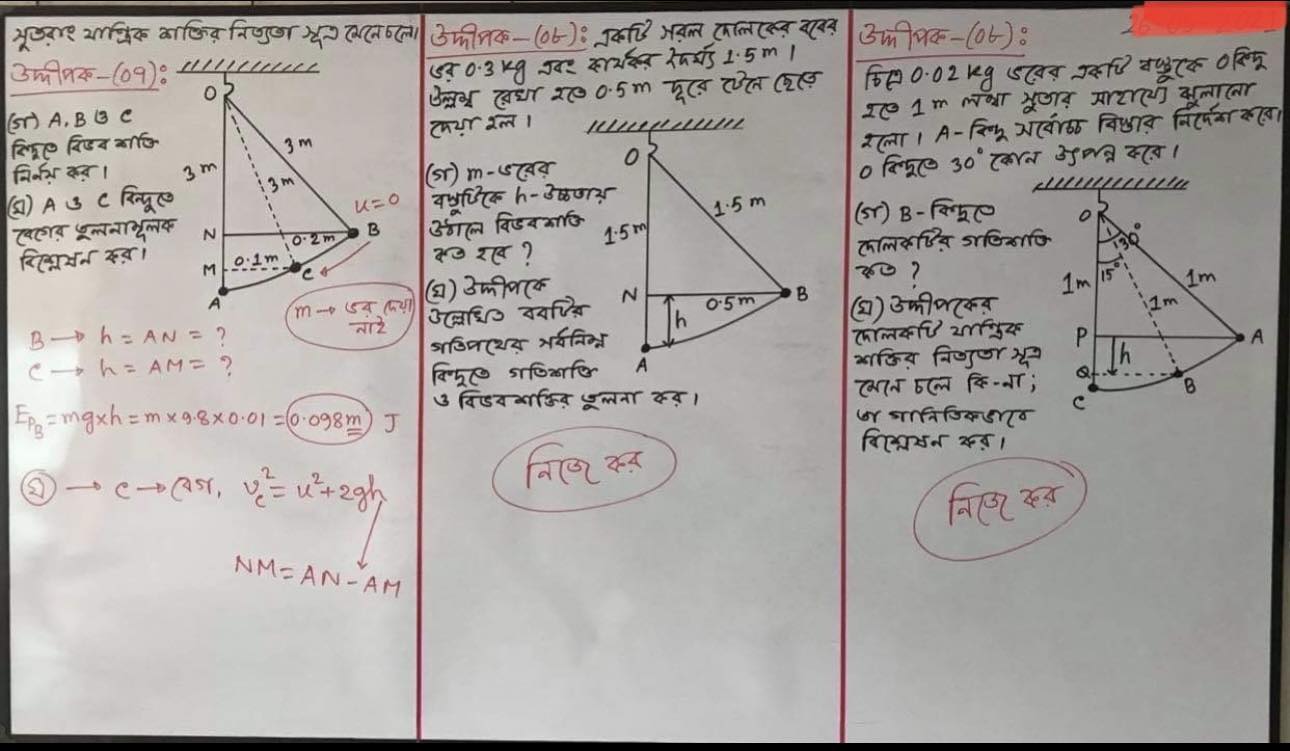 সুতরাং যান্ত্রিক শক্তির নিত্যতা সূত্র মেনে চলে।
উদ্দীপক-(০৭):
(গ) A, B ও C
বিন্দুতে বিভব শক্তি
নির্নয় কর।
(ঘ) A ও C বিন্দুতে
বেগের তুলনামূলক
বিশ্লেষন কর।
O
3 m
3 m
3 m
u = 0
N
0.2 m
B
M
0.1 m
C
A
m → ভর দেয়া
নাই
B → h = AN = ?
C → h = AM = ?
E_{P_B} = mg×h = m × 9.8 × 0.01 = 0.098m J
(ঘ) → C → বেগ, v_c² = u² + 2gh
NM = AN - AM
উদ্দীপক-(০৮): একটি সরল দোলকের ববের
ভর 0.3 kg এবং কার্যকর দৈর্ঘ্য 1.5 m ।
উল্লম্ব রেখা হতে 0.5 m দূরে টেনে ছেড়ে
দেয়া হল ।
(গ) m-ভরের
বস্তুটিকে h-উচ্চতায়
উঠালে বিভব শক্তি
কত হবে ?
(ঘ) উদ্দীপকে
উল্লেখিত ববটির
গতিপথের সর্বনিম্ন
বিন্দুতে গতিশক্তি
ও বিভব শক্তির তুলনা কর।
O
1.5 m
1.5 m
N
0.5 m
B
h
A
নিজে কর
উদ্দীপক-(০৮):
চিত্রে 0.02 kg ভরের একটি বস্তুকে O বিন্দু
হতে 1 m লম্বা সুতার সাহায্যে ঝুলানো
হলো । A- বিন্দু সর্বোচ্চ বিস্তার নির্দেশ করে।
O বিন্দুতে 30° কোন উৎপন্ন করে।
(গ) B - বিন্দুতে
দোলকটির গতিশক্তি
কত ?
(ঘ) উদ্দীপকের
দোলকটি যান্ত্রিক
শক্তির নিত্যতা সূত্র
মেনে চলে কি-না;
তা গানিতিকভাবে
বিশ্লেষন কর।
O
30°
15°
1 m
1m
1m
P
A
h
Q
B
C
নিজে কর